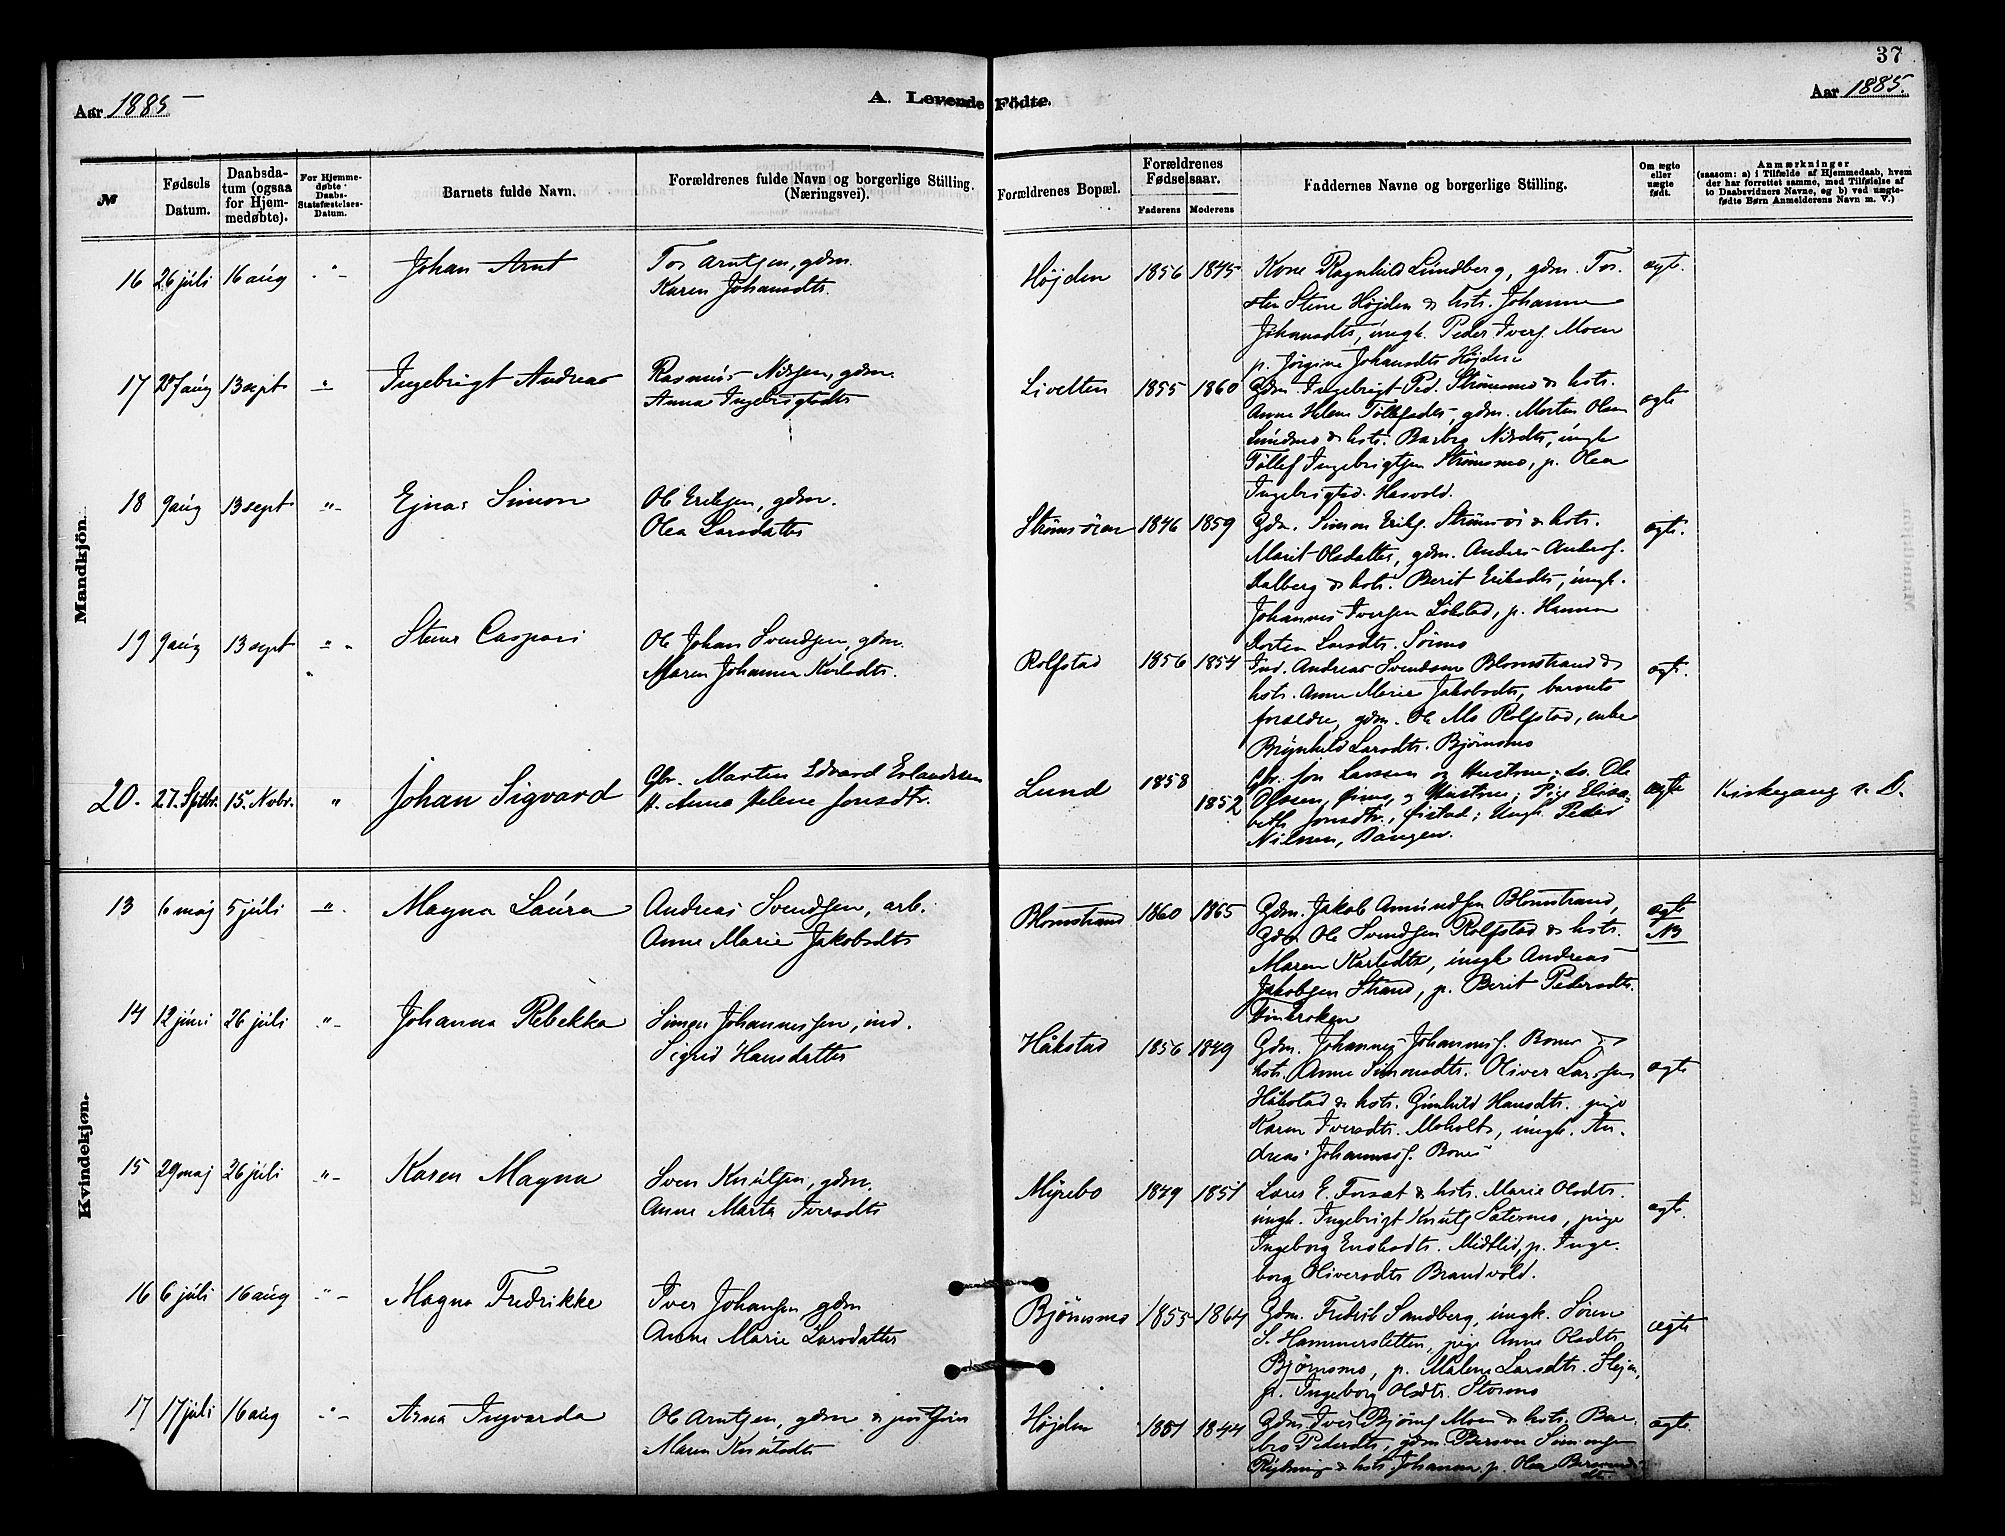 37
Aar 1885
A. Levende Födte.
Aar 1885.
№
Fødsels Datum.
Daabsdatum (ogsaa for Hjemmedøbte).
For Hjemmedøbte Daabs-Statsfæstelses-Datum.
Barnets fulde Navn.
Forældrenes fulde Navn og borgerlige Stilling. (Næringsvei).
Forældrenes Bopæl.
Forældrenes Fødselsaar.
Faderens Moderens
Faddernes Navne og borgerlige Stilling.
Om ægte eller uægte født.
Anmærkninger
(saasom: a) i Tilfælde af Hjemmedaab, hvem der har forrettet samme, med Tilføielse af to Daabsvidners Navne, og b) ved uægtefødte Børn Anmelderens Navn m. V.)
Mandkjön.
16 26 júli 16 aúg " Johan Arnt
Tor Arntsen, gdm.
Karen Johansdtr.
Højden 1856 1845
Kone Ragnhild Lúndberg, gdm. Tor-
sten Stene Højden & hstr. Johanne
Johansdtr, úngk. Peder Ivers. Moen
p. Jørgine Johansdtr Højden
ægte.
17 13 sept " Ingebrigt Andreas
Rasmús Nilsen, gdm.
Anna Ingebrigtsdtr
Livelten 1855 1860
Gdm. Ingebrigt Ped. Strømsmo & hstr.
Anne Helene Tollefsdtr, gdm. Morten Olsen
Lúndmo & hstr. Barbro Nilsdtr, úngk
Tollef Ingebrigtsen Strømsmo, p. Olea
Ingebrigtsd. Hasvold.
ægte
18 9 aúg 13 sept " Ejnar Simon
Ole Eriksen, gdm.
Olea Larsdatter
Strømsøren 1846 1859
Gdm. Simon Eriks. & hstr.
Marit Olsdatter, gdm. Anders Anders.
Dalberg & hstr. Berit Eriksdtr, úngk.
Johannes Iversen Løkstad, p. Hanna
Dorten Larsdtr. Sørmo
ægte.
19 9 aúg 13 sept " Stener Caspari
Ole Johan Svendsen, gdm.
Maren Johanna Karlsdtr.
Rolfstad 1856 1854
Ind. Andreas Svendsen Blomstrand &
hstr. Anne Marie Jakobsdtr, barnets
forældre, gdm. Ole Mo Rolfstad, enke
Brynhild Larsdtr. Bjørnsmo
ægte.
20. 27. Septbr. 15. Novbr. " Johan Sigvard
Gbr. Morten Edvard Erlandsen
H. Anna Helene Jonsdtr.
Lund 1858 1852
Gbr. Jon Larssen og Hustru; do. Ole
Olssen, og Hustru; Pige Elisa-
beth Jonsdtr., Øistad; Ungk. Peder
Nilssen, Bangen.
ægte
Kirkegang s. D.
Kvindekjøn.
13 6 maj 5 júli " Magna Laúra
Andreas Svendsen, arb.
Anne Marie Jakobsdtr
Blomstrand 1860 1865
Gdm. Jakob Amúndsen Blomstrand,
Gdm Ole Svendsen Rolfstad & hstr.
Maren Karlsdtr, úngk Andreas
Jakobsen Strand, p. Berit Pedersdtr.
Finkroken
ægte
NB
14 12 júni 26 júli " Johanna Rebekka
Simon Johannessen, ind.
Sigrid Hansdatter
Håkstad 1856 1849
Gdm. Johannes Johanness. Bones &
hstr. Anne Simonsdtr. Oliver Larssen
Håkstad & hstr. Gúnhild Hansdtr. pige
Karen Iversdtr. Moholt, úngk. An-
dreas Johanness. Bones
ægte
15 29 maj 26 júli " Karen Magna
Sven Knútsen, gdm.
Anne Marta Iversdtr
Myrebo 1849 1851
Lars E. Forsæt & hstr. Marie Olsdtr.
úngk. Ingebrigt Knúts Sætermo, pige
Ingeborg Enoksdtr. Midtlid, p. Inge-
borg Oliversdtr Brandvold.
ægte.
16 6 júli 16 aúg " Magna Fredrikke
Iver Johansen gdm
Anne Marie Larsdatter
Bjørnsmo 1855 1864
Gdm. Fredrik Sandberg, úngk. Søren
S. Hammersletten, pige Anne Olsdtr
Bjørnsmo, p. Malene Larsdtr.
p. Ingeborg Olsdtr. Stormo
ægte
17 17 júli 16 aúg " Arna Ingvarda
Ole Arntsen, gdm &
Maren Knútsdtr
Højden 1851 1844
Gdm Iver Bjørns Moen & hstr. Bar-
bro Pedersdtr, gdm. Bersven Simonsen
& hstr. Johanna. p. Olea Bersvends-
dtr
ægte.